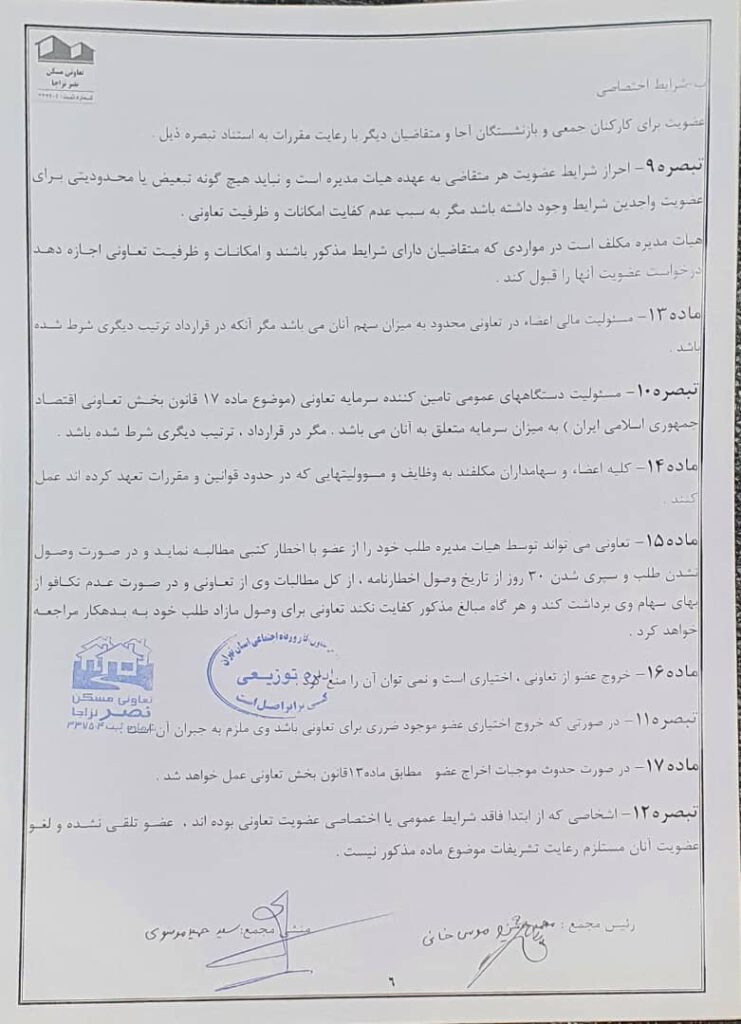 تعاونی مسکن
نصر نزاجا
ب-شرایط اختصاصی
عضویت برای کارکنان جمعی و بازنشستگان آجا و متقاضیان دیگر با رعایت مقررات به استناد تبصره ذیل .
تبصره ۹- احراز شرایط عضویت هر متقاضی به عهده هیات مدیره است و نباید هیچ گونه تبعیض یا محدودیتی برای
عضویت واجدین شرایط وجود داشته باشد مگر به سبب عدم کفایت امکانات و ظرفیت تعاونی .
هیات مدیره مکلف است در مواردی که متقاضیان دارای شرایط مذکور باشند و امکانات و ظرفیت تعاونی اجازه دهد
درخواست عضویت آنها را قبول کند .
ماده ۱۳- مسئولیت مالی اعضاء در تعاونی محدود به میزان سهم آنان می باشد مگر آنکه در قرارداد ترتیب دیگری شرط شده
باشد .
تبصره ۱۰- مسئولیت دستگاههای عمومی تامین کننده سرمایه تعاونی (موضوع ماده ۱۷ قانون بخش تعاونی اقتصاد
جمهوری اسلامی ایران ) به میزان سرمایه متعلق به آنان می باشد . مگر در قرارداد ، ترتیب دیگری شرط شده باشد .
ماده ۱۴- کلیه اعضاء و سهامداران مکلفند به وظایف و مسوولیتهایی که در حدود قوانین و مقررات تعهد کرده اند عمل
کنند .
ماده ۱۵- تعاونی می تواند توسط هیات مدیره طلب خود را از عضو با اخطار کتبی مطالبه نماید و در صورت وصول
نشدن طلب و سپری شدن ۳۰ روز از تاریخ وصول اخطارنامه ، از کل مطالبات وی از تعاونی و در صورت عدم تکافو از
بهای سهام وی برداشت کند و هر گاه مبالغ مذکور کفایت نکند تعاونی برای وصول مازاد طلب خود به بدهکار مراجعه
خواهد کرد .
ماده ۱۶- خروج عضو از تعاونی ، اختیاری است و نمی توان آن را منع کرد .
تبصره ۱۱- در صورتی که خروج اختیاری عضو موجود ضرری برای تعاونی باشد وی ملزم به جبران آن است
تعاون کار و رفاه اجتماعی استان تهران
توزیعی
کپی برابر اصل است
تعاونی مسکن
نصر نزاجا
ماده ۱۷- در صورت حدوث موجبات اخراج عضو مطابق ماده۱۳قانون بخش تعاونی عمل خواهد شد .
تبصره ۱۲- اشخاصی که از ابتدا فاقد شرایط عمومی یا اختصاصی عضویت تعاونی بوده اند ، عضو تلقی نشده و لغو
عضویت آنان مستلزم رعایت تشریفات موضوع ماده مذکور نیست .
رئیس مجمع : موسی خانی
منشی مجمع: سید حمید موسوی
۶